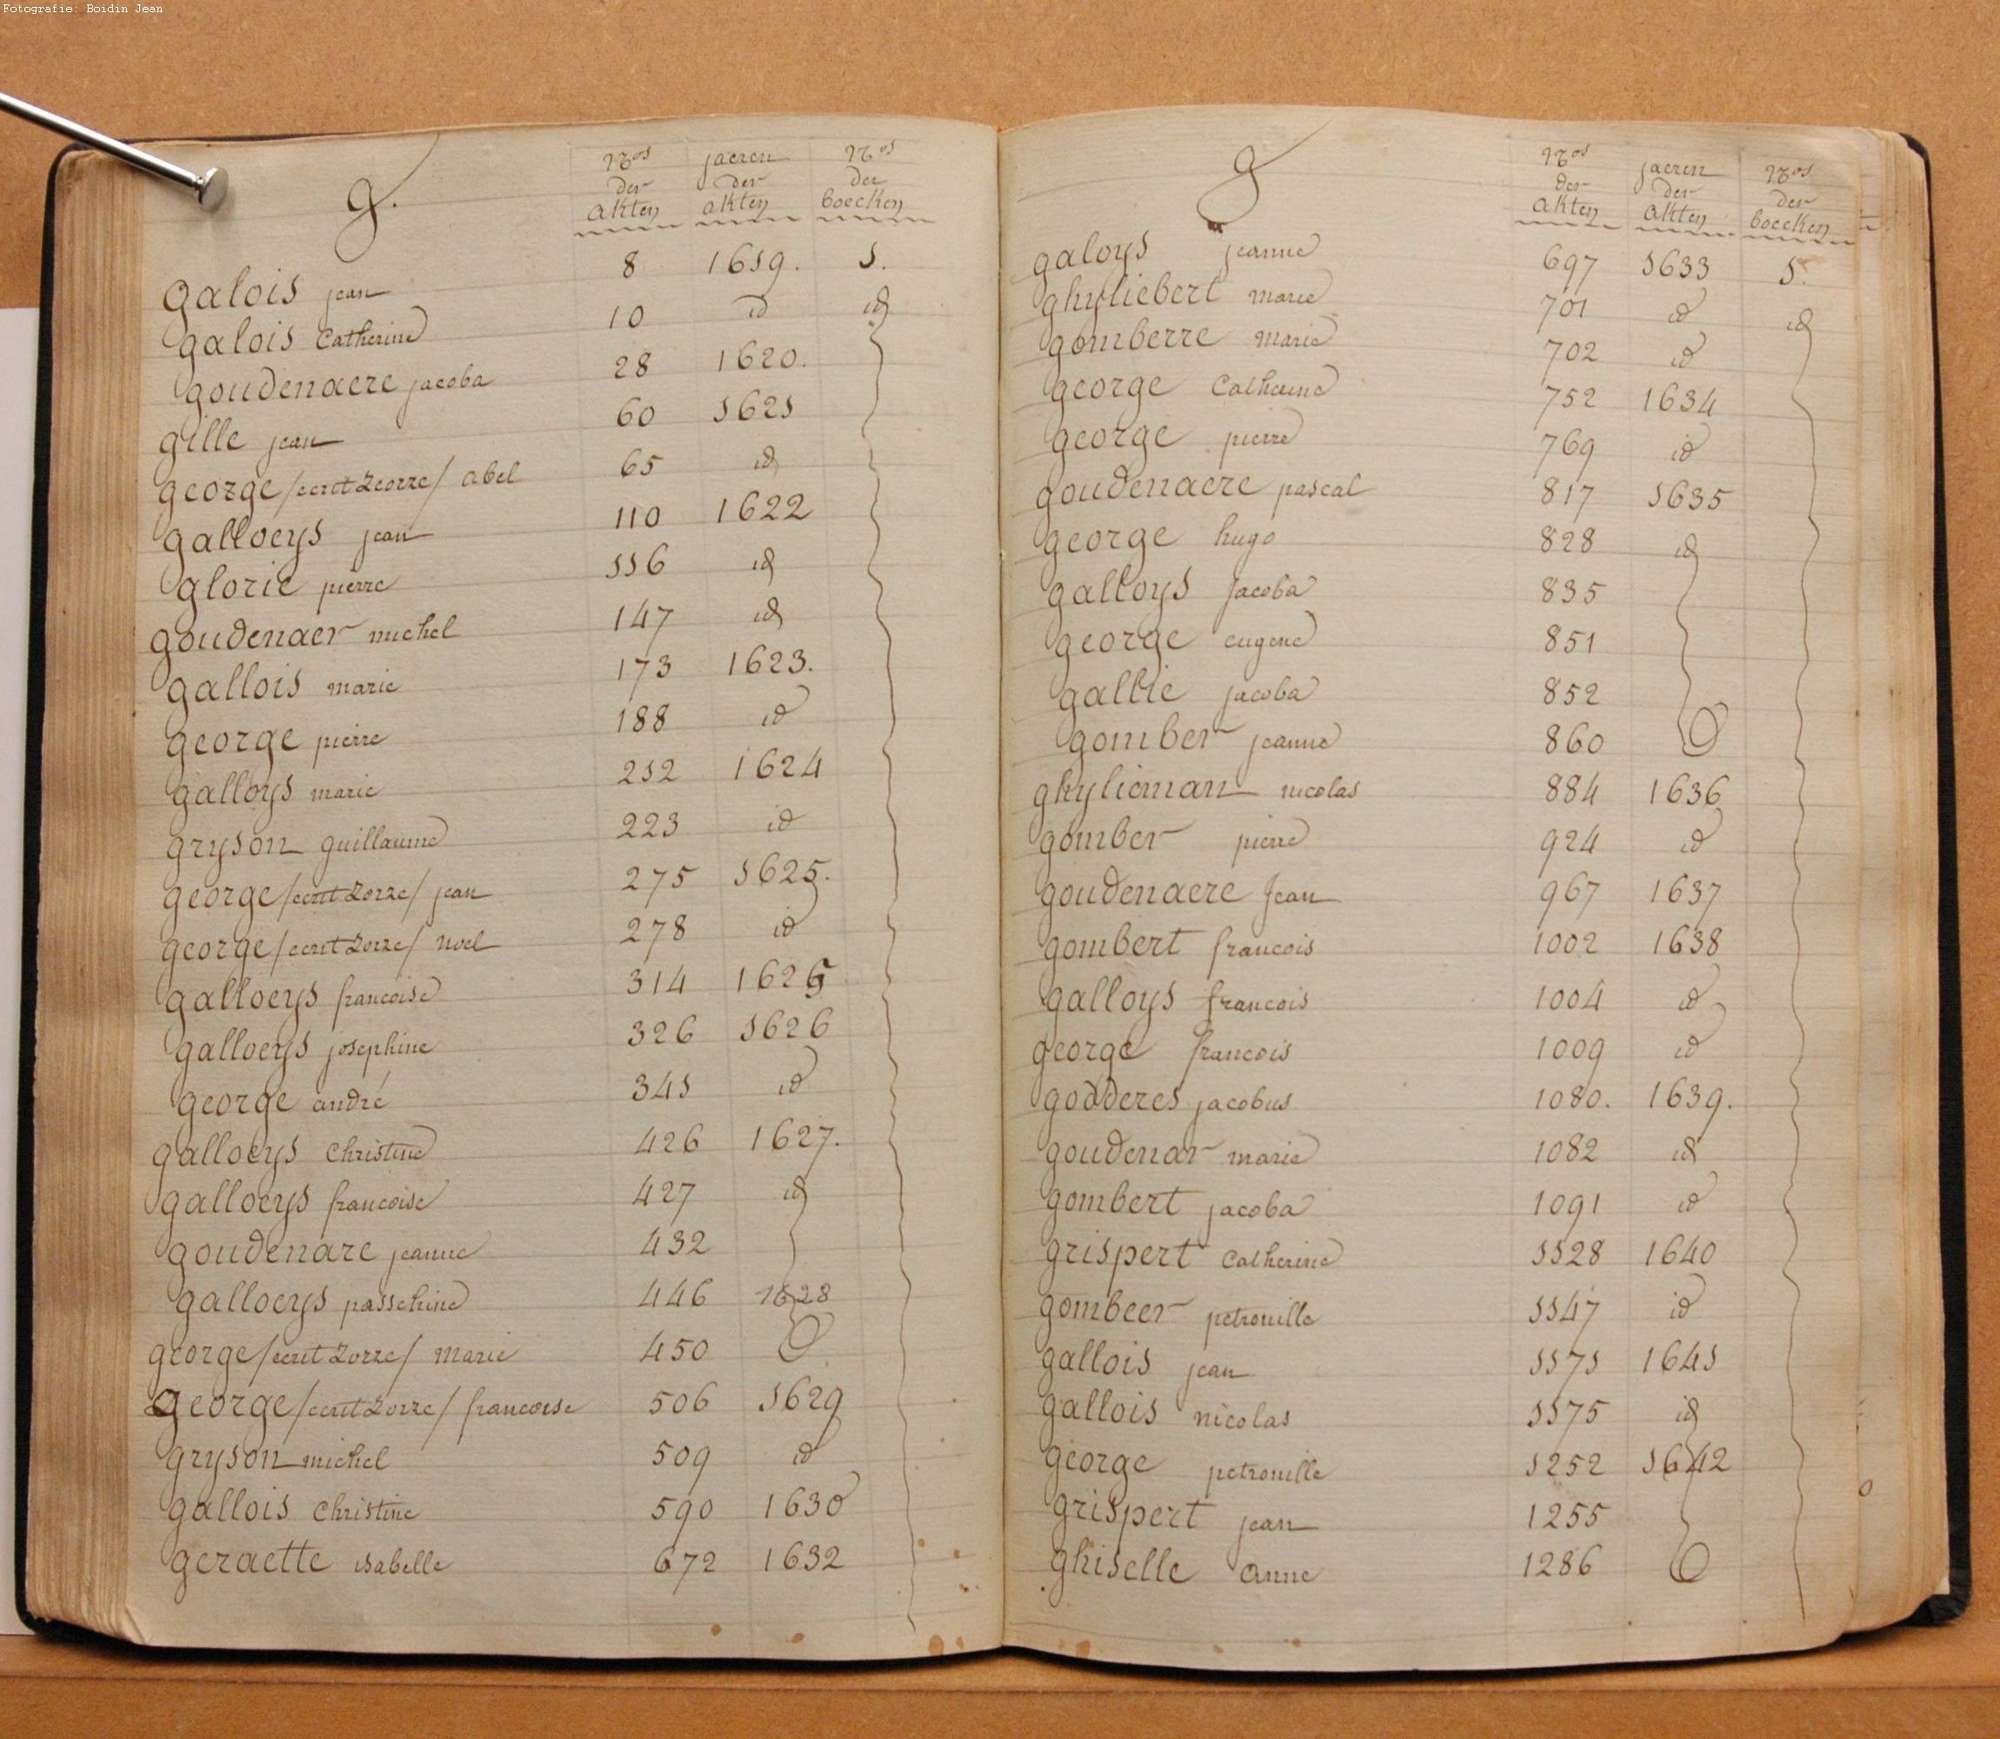 Fotografie: Boidin Jean
g.
Nos der akten jaeren der akten Nos der boecken
galois jean 8 1619. 1.
galois Catherine 10 id id
goudenaere jacoba 28 1620.
gille jean 60 1621
george /ecrit Zeorze/ abel 65 id
galloeys jean 110 1622
glorie pierre 116 id
goudenaer michel 147 id
gallois marie 173 1623.
george pierre 188 id
galloys marie 212 1624
gryson guillaume 223 id
george /ecrit Zorze/ jean 275 1625.
george /ecrit Zorze/ noel 278 id
galloeys francoise 314 1625
galloeys josephine 326 1626
george andré 341 id
galloeys Christine 426 1627.
galloeys francoise 427 id
goudenare jeanne 432
galloeys passchine 446 1628
george /ecrit Zorze/ marie 450
george /ecrit Zorze/ francoise 506 1629
gryson michel 509 id
gallois Christine 590 1630
geraette isabelle 672 1632
g
Nos der akten jaeren der akten Nos der boecken
galoys jeanne 697 1633 1.
ghyliebert marie 701 id id
gomberre marie 702 id
george Catherine 752 1634
george pierre 769 id
goudenaere pascal 817 1635
george hugo 828 id
galloys Jacoba 835
george eugene 851
gallie jacoba 852
gomber jeanne 860
ghylieman nicolas 884 1636
gomber pierre 924 id
goudenaere Jean 967 1637
gombert francois 1002 1638
galloys francois 1004 id
george francois 1009 id
godderes jacobus 1080. 1639.
goudenar marie 1082 id
gombert jacoba 1091 id
grispert Catherine 1128 1640
gombeer petronille 1147 id
gallois jean 1171 1641
gallois nicolas 1175 id
george petronille 1252 1642
grispert jean 1255
ghiselle anne 1286